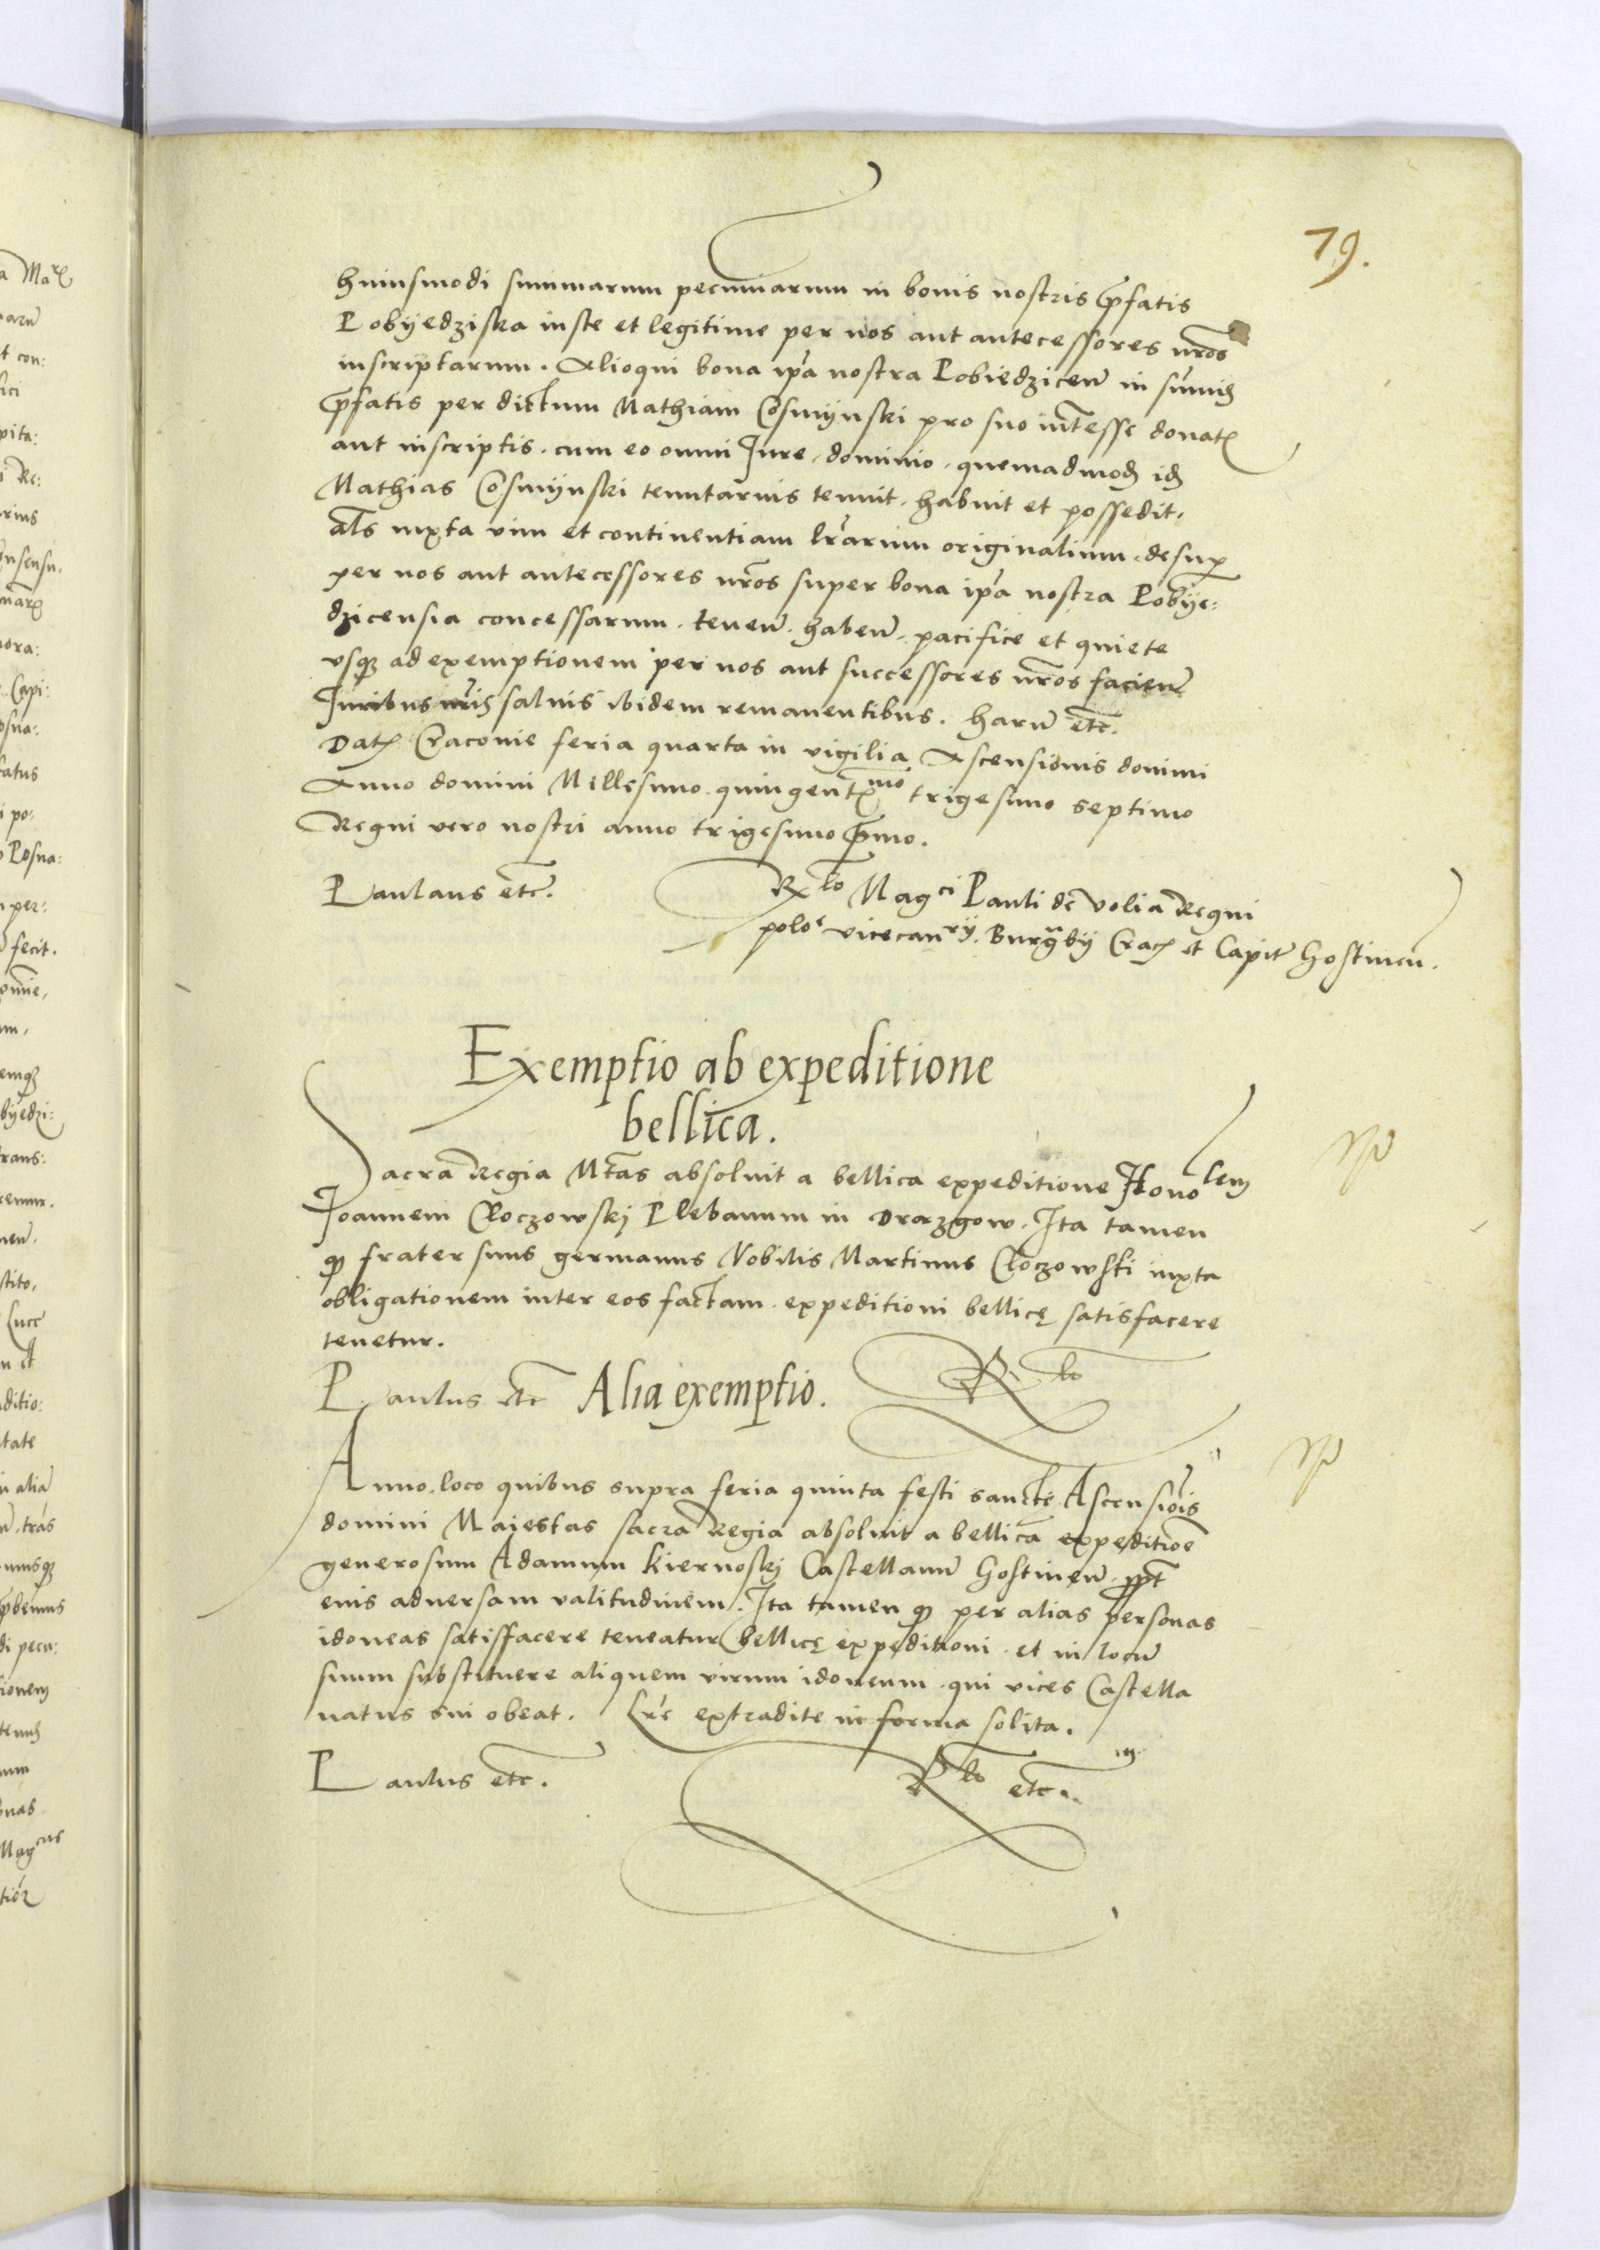 79.
huiusmodi summarum pecuniarum in bonis nostris p̄fatis
Pobyedziska iuste et legitime per nos aut antecessores nr̄os
inscriptarum. Alioqui bona ip̄a nostra Pobiedzicen̄ in sum̄is
p̄fatis per dictum Mathiam Cosmynski pro suo int̄esse donat
aut inscriptis. cum eo omni Iure, dominio, quemadmod id
Mathias Cosmynski tenutarius tenuit, habuit et possedit,
al̄s iuxta vim et continentiam lr̄arum originalium, desup
per nos aut antecessores nr̄os super bona ip̄a nostra Pobye:
dzicensia concessarum. tenen̄. haben̄. pacifice et quiete
vsq ad exemptionem per nos aut successores nr̄os facien̄
Iuribus nr̄is salvis ibidem remanentibus. Harū etc.
Dat Cracovie feria quarta in vigilia Ascensionis domini
Anno domini Millesimo quingent^mo trigesimo septimo
Regni vero nostri anno trigesimo p̄mo.
Paulaus etc.
R^lo Mag^ci Pauli de Volia Regni
polo^e vicecan^rij. Burg^abij Crac et Capit̄ Gostinen.
Exemptio ab expeditione
bellica.
Sacra Regia Mt̄as absoluit a bellica expeditione Hono^lem
Joannem Cloczowskj Plebanum in Drazgow. Ita tamen
q frater suus germanus Nobilis Martinus Cloczowski iuxta
obligationem inter eos factam. expeditioni bellicę satisfacere
tenetur.
Paulus etc
R^lo
Alia exemptio.
Anno. loco quibus supra feria quinta festi sancte Ascensiōis
domini Maiestas sacra Regia absoluit a bellica expeditioē
generosum Adamum Kiernoskj Castellanū Gostinen̄. ppt̄
eius adversam valitudinem. Ita tamen q per alias personas
idoneas satisfacere teneatur bellicę expeditioni. et in locū
suum substituere aliquem virum idoneum. qui vices Castella
natus sui obeat. Lr̄e extradite in forma solita.
Paulus etc.
R^lo etc.